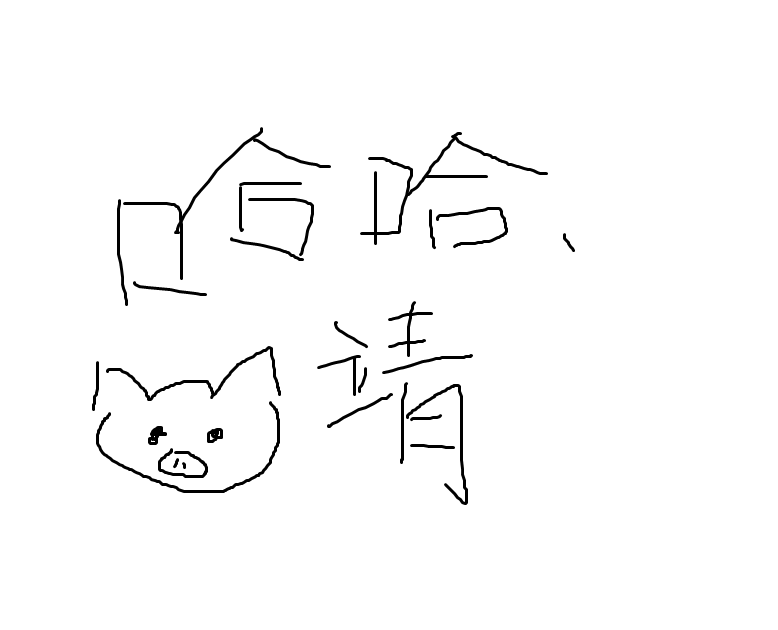 哈哈、
请